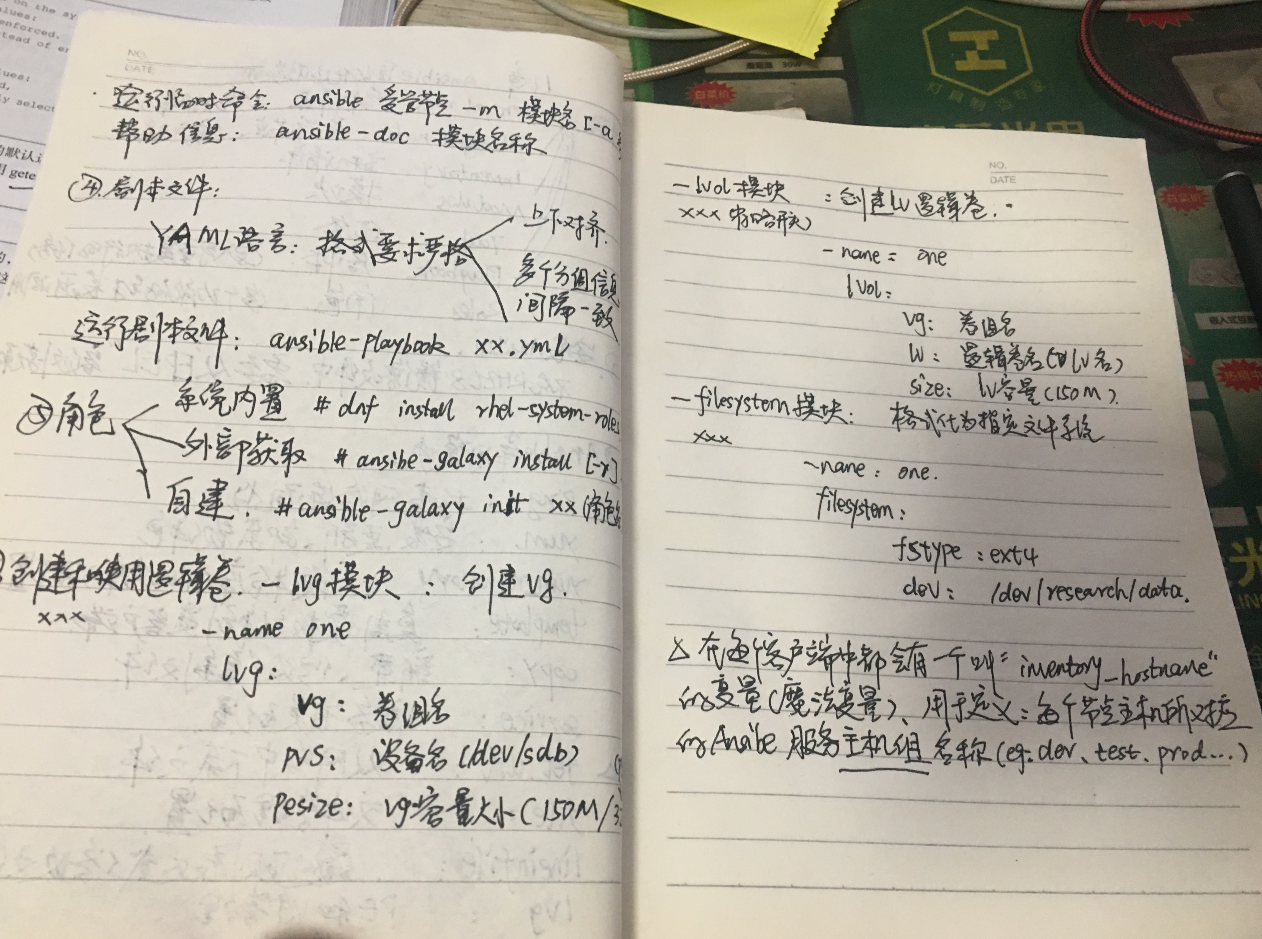 on the sy
alues:
enforced.
tead of e
ues:
d,
ly select
的默认
用 gete
NO.
DATE
· 运行临时命令: ansible 受管节点 -m 模块名 [-a
帮助信息: ansible-doc 模块名称
④ 剧本文件:
YAML语言: 格式要求严格
上下对齐.
多个分组信息
间隔一致
运行剧本文件: ansible-playbook xx.yml
⑤ 角色
系统内置 # dnf install rhel-system-roles
外部获取 # ansibe-galaxy install [-r]
自建. # ansible-galaxy init xx (角色
创建和使用逻辑卷. — lvg模块 : 创建vg.
xxx
-name one
lvg:
vg: 卷组名
pvs: 设备名(/dev/sdb)
pesize: vg容量大小(150M/3
NO.
DATE
— lvol模块 : 创建lv逻辑卷.
xxx (省略形式)
-name: one
lvol:
vg: 卷组名
lv: 逻辑卷名(lv名)
size: lv容量(150M)
— filesystem模块: 格式化为指定文件系统
xxx
-name: one.
filesystem:
fstype: ext4
dev: /dev/research/data.
△ 在每个客户端中都会有一个叫"inventory_hostname"
的变量(魔法变量)、用于定义: 每个节点主机所对应
的Ansibe 服务主机组名称(eg. dev、test、prod...)
白菜价